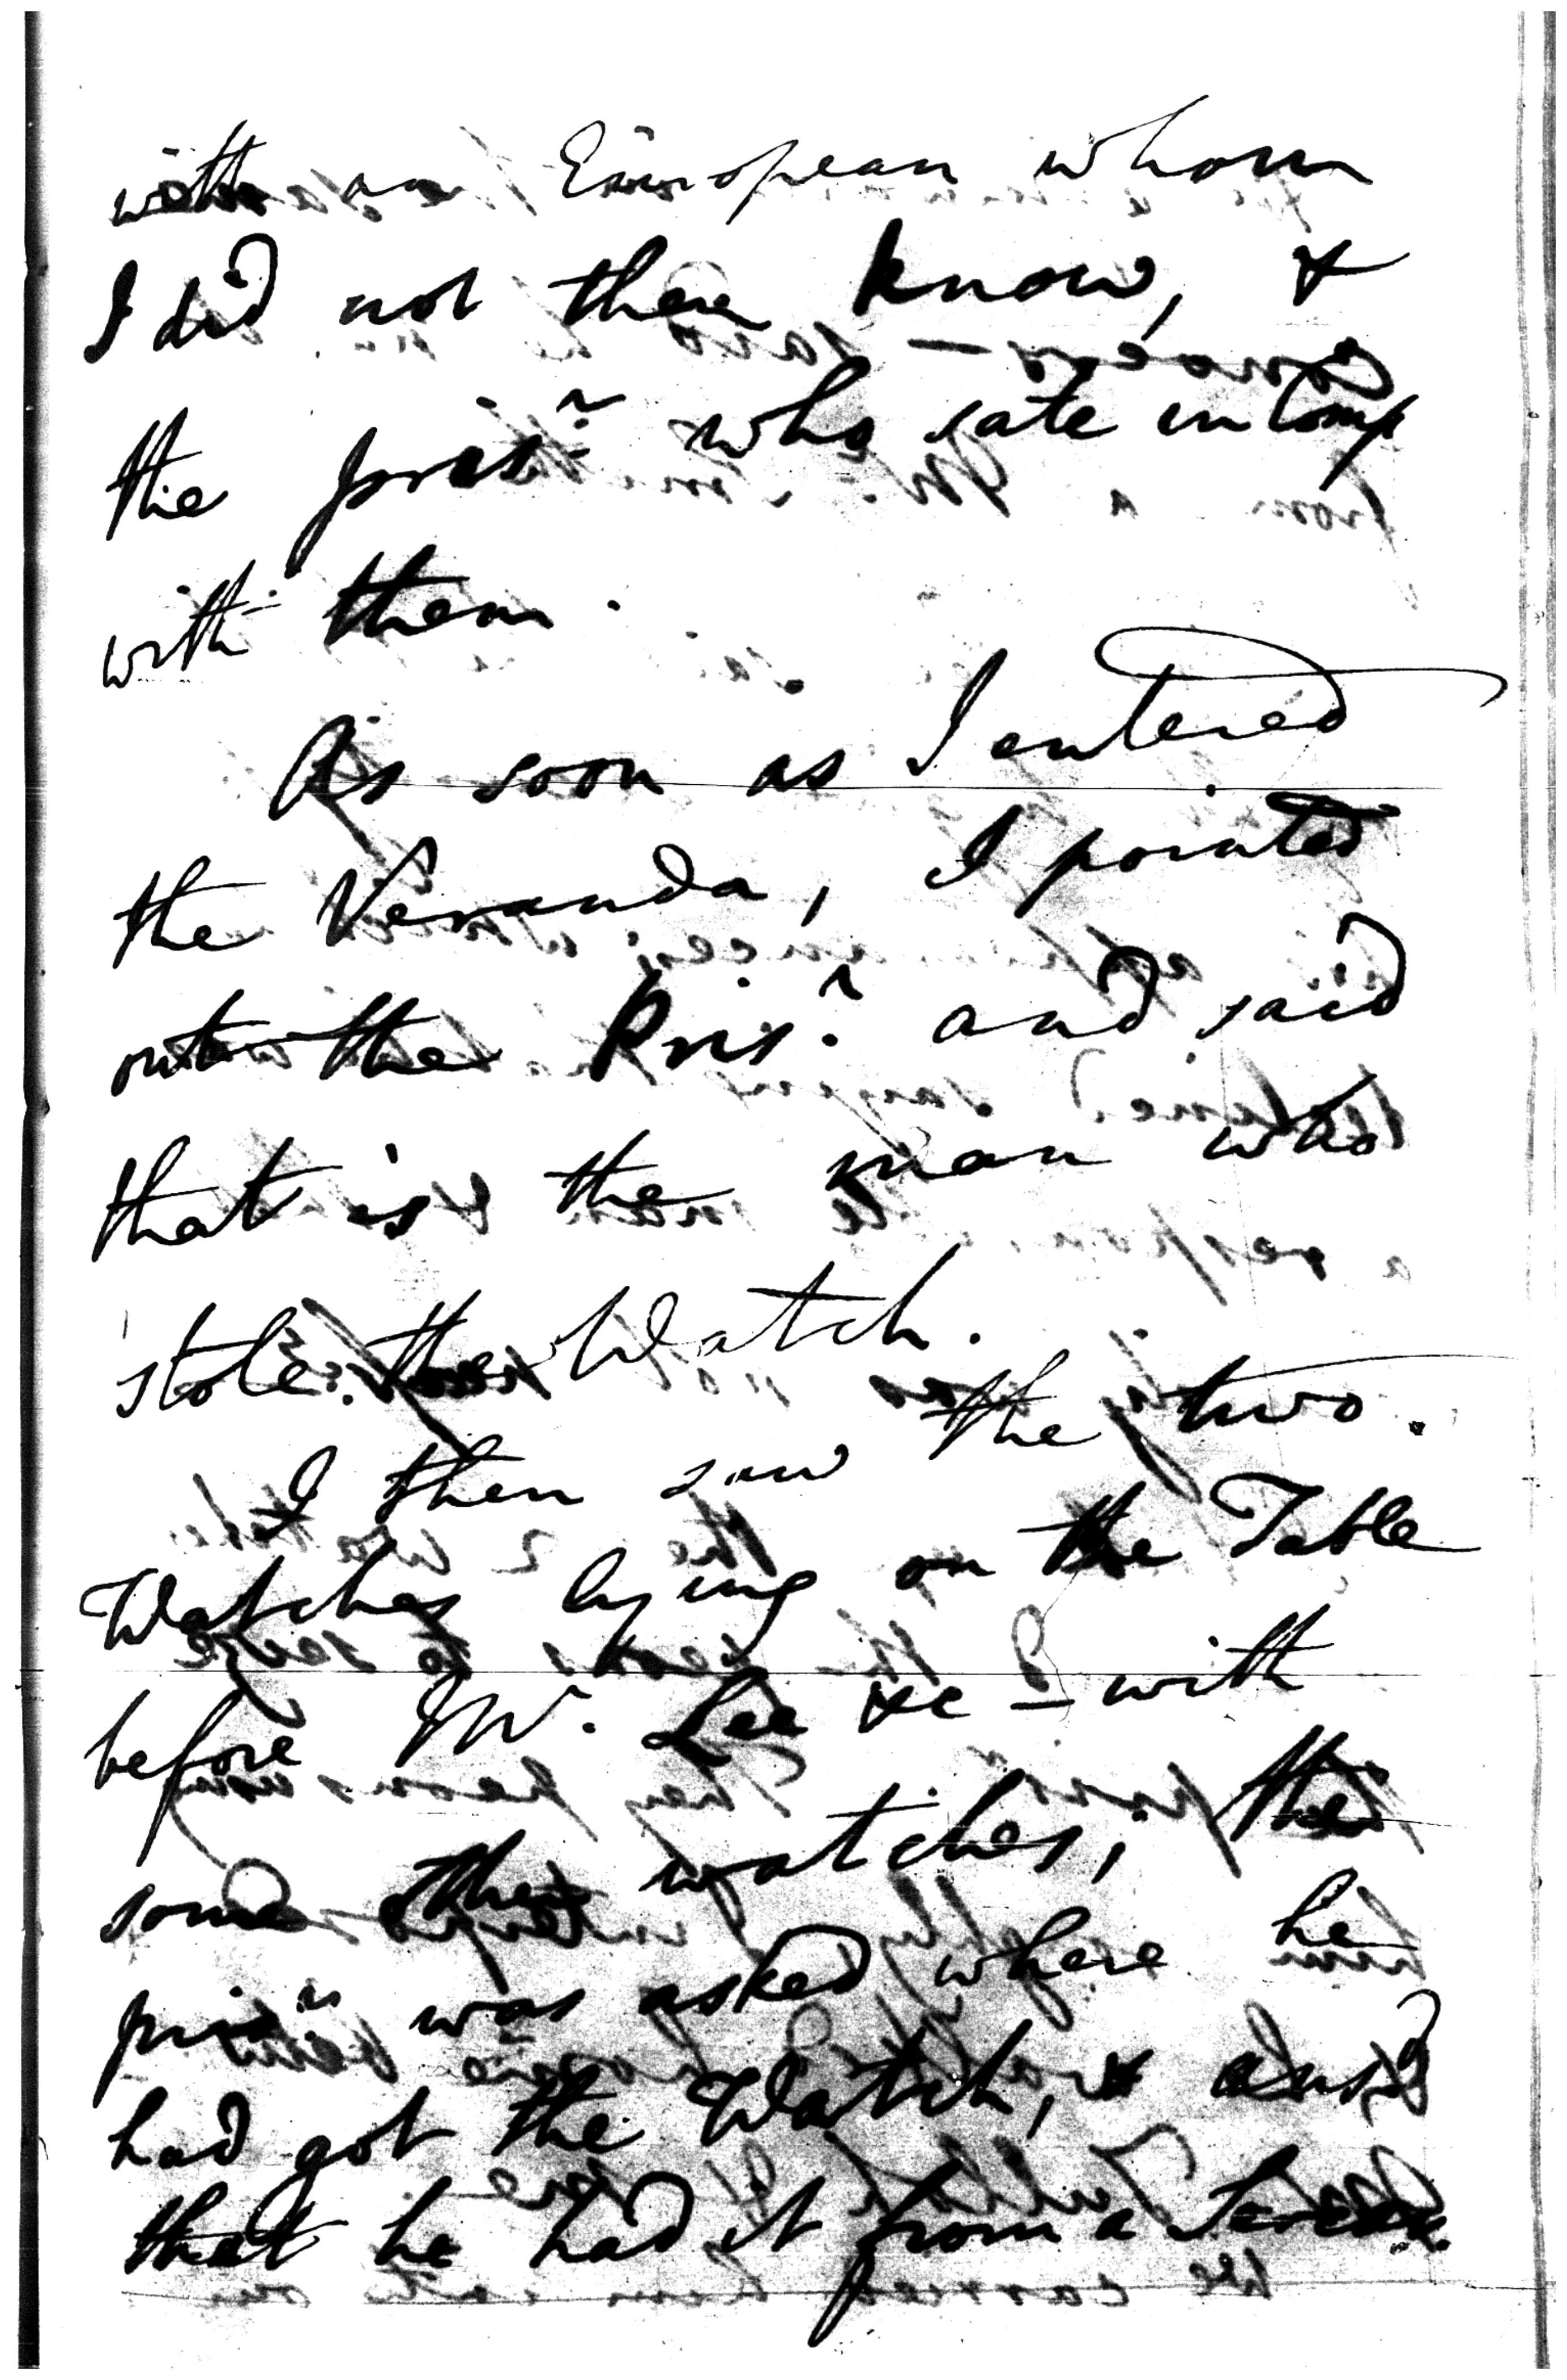 with an European whom
I did not then know, &
the prisr who sate in Comp
with them.
As soon as I entered
the Veranda, I pointed
out the Prisr and said
that is the man who
stole the Watch.
I then saw the two
Watches lying on the Table
before Mr. Lee &c - with
some other watches; the
prisr was asked where he
had got the Watch, & ansd
that he had it from a